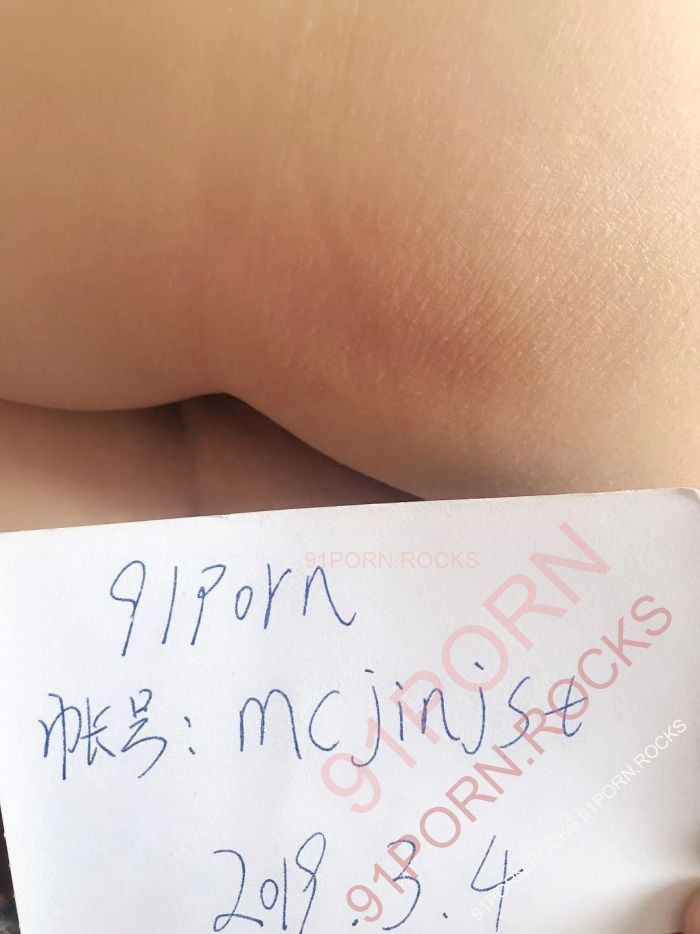 91porn
91PORN.ROCKS
帐号: mcjinjsz
91PORN
91PORN.ROCKS
91PORN.ROCKS 91PORN.ROCKS
2019.3.4